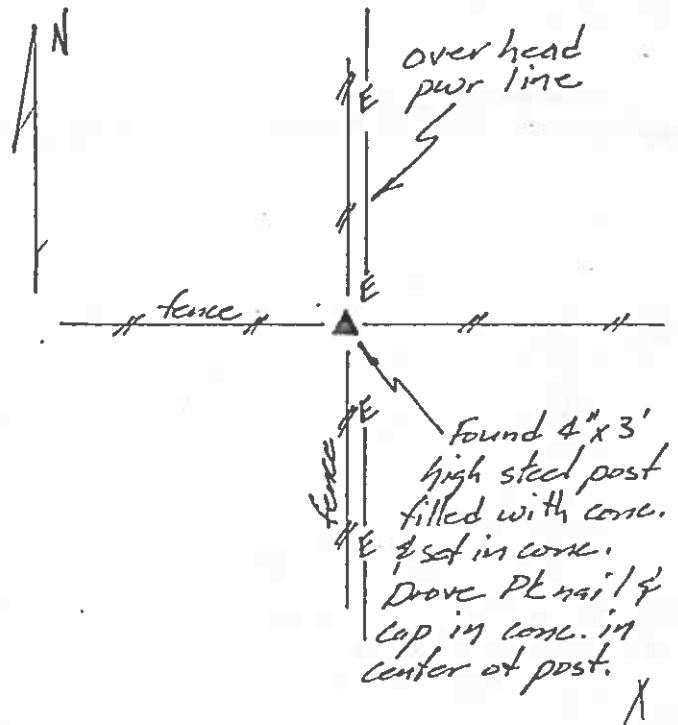 N
over head
pwr line
E
E
fence
E
fence
E
Found 4" x 3'
high steel post
filled with conc.
& set in conc.
Drove Pk nail &
cap in conc. in
center of post.
X